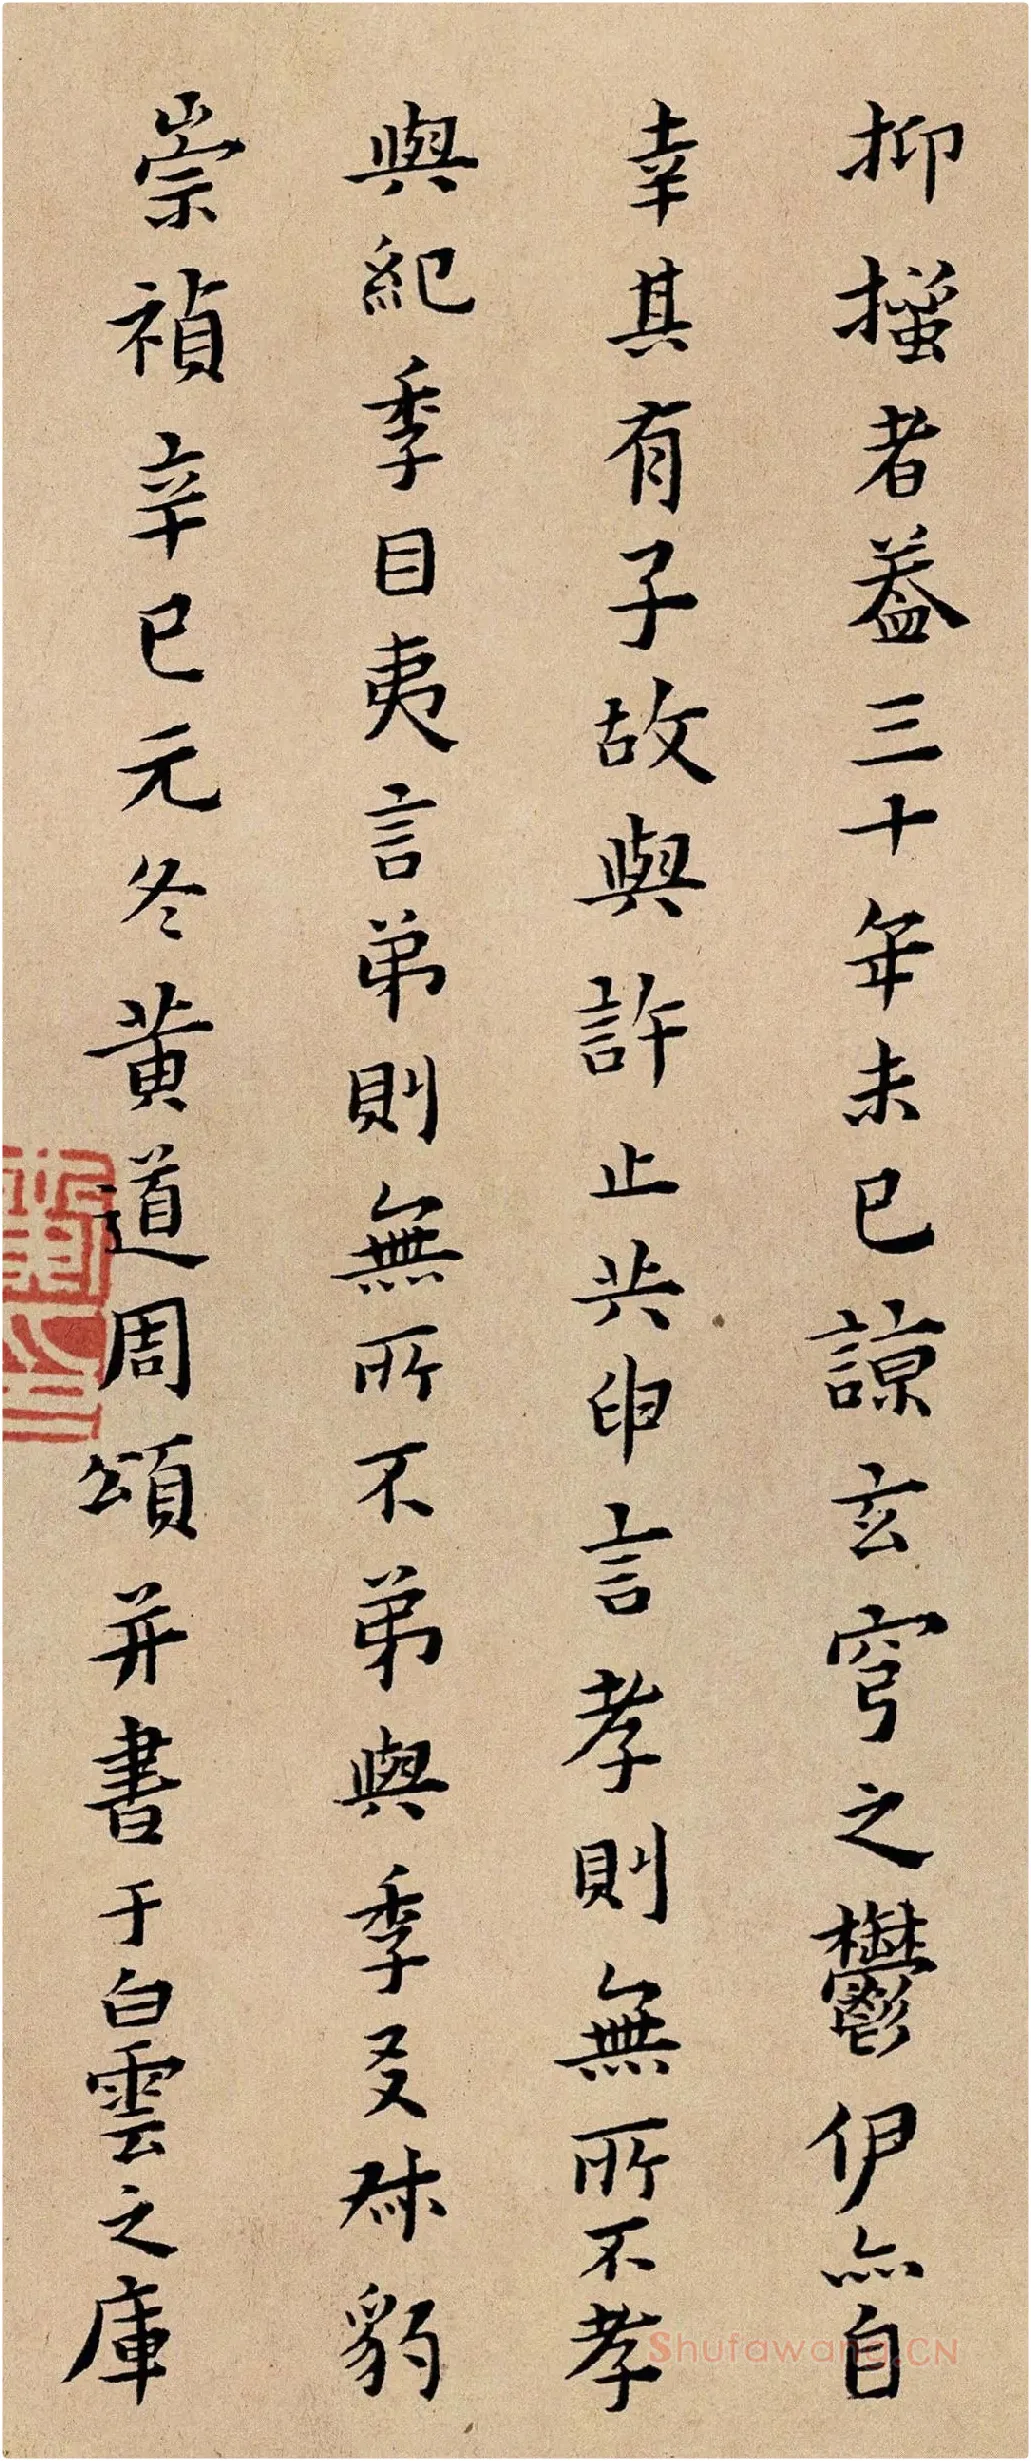 抑搔者葢三十年未已諒玄穹之鬱伊亦自
幸其有子故與許止共
言孝則無所不孝
與紀季目夷言弟則無所不弟與季友
崇禎辛巳元冬黄道周頌并書于白雲之庫
Shufawang.CN